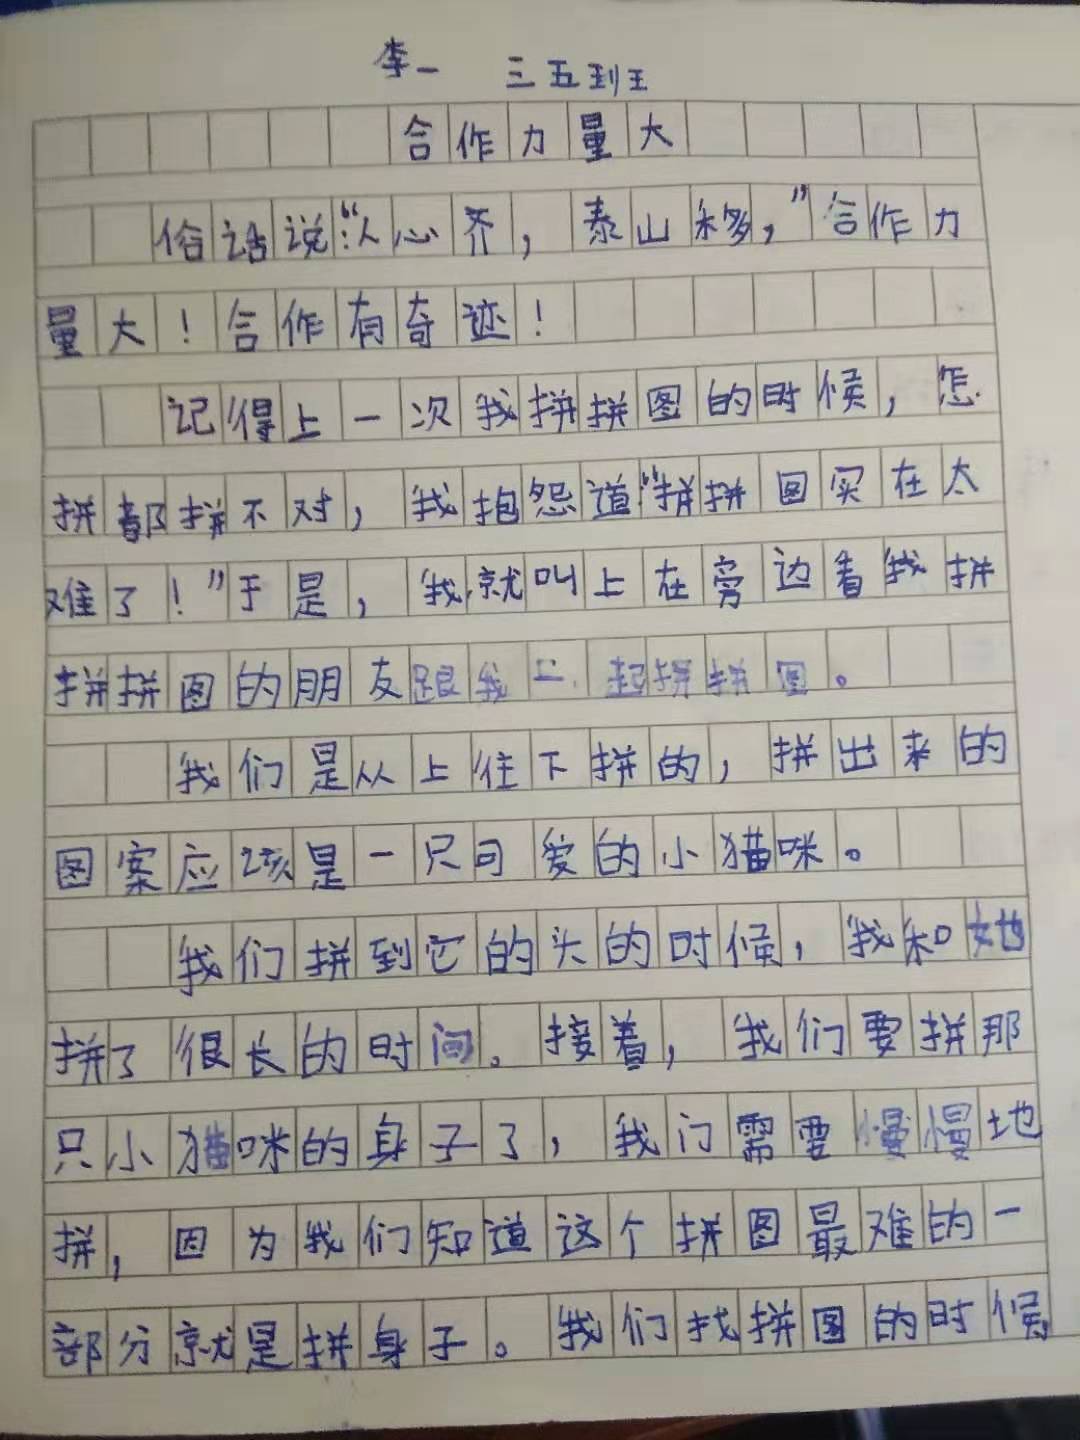 李一 三五到班
合作力量大
俗话说:“人心齐,泰山移,”合作力
量大!合作有奇迹!
记得上一次我拼拼图的时候,怎
拼都拼不对,我抱怨道:“拼拼图实在太
难了!”于是,我就叫上在旁边看我拼
拼拼图的朋友跟我一起拼拼图。
我们是从上往下拼的,拼出来的
图案应该是一只可爱的小猫咪。
我们拼到它的头的时候,我和她
拼了很长的时间。接着,我们要拼那
只小猫咪的身子了,我门需要慢慢地
拼,因为我们知道这个拼图最难的一
部分就是拼身子。我们找拼图的时候,